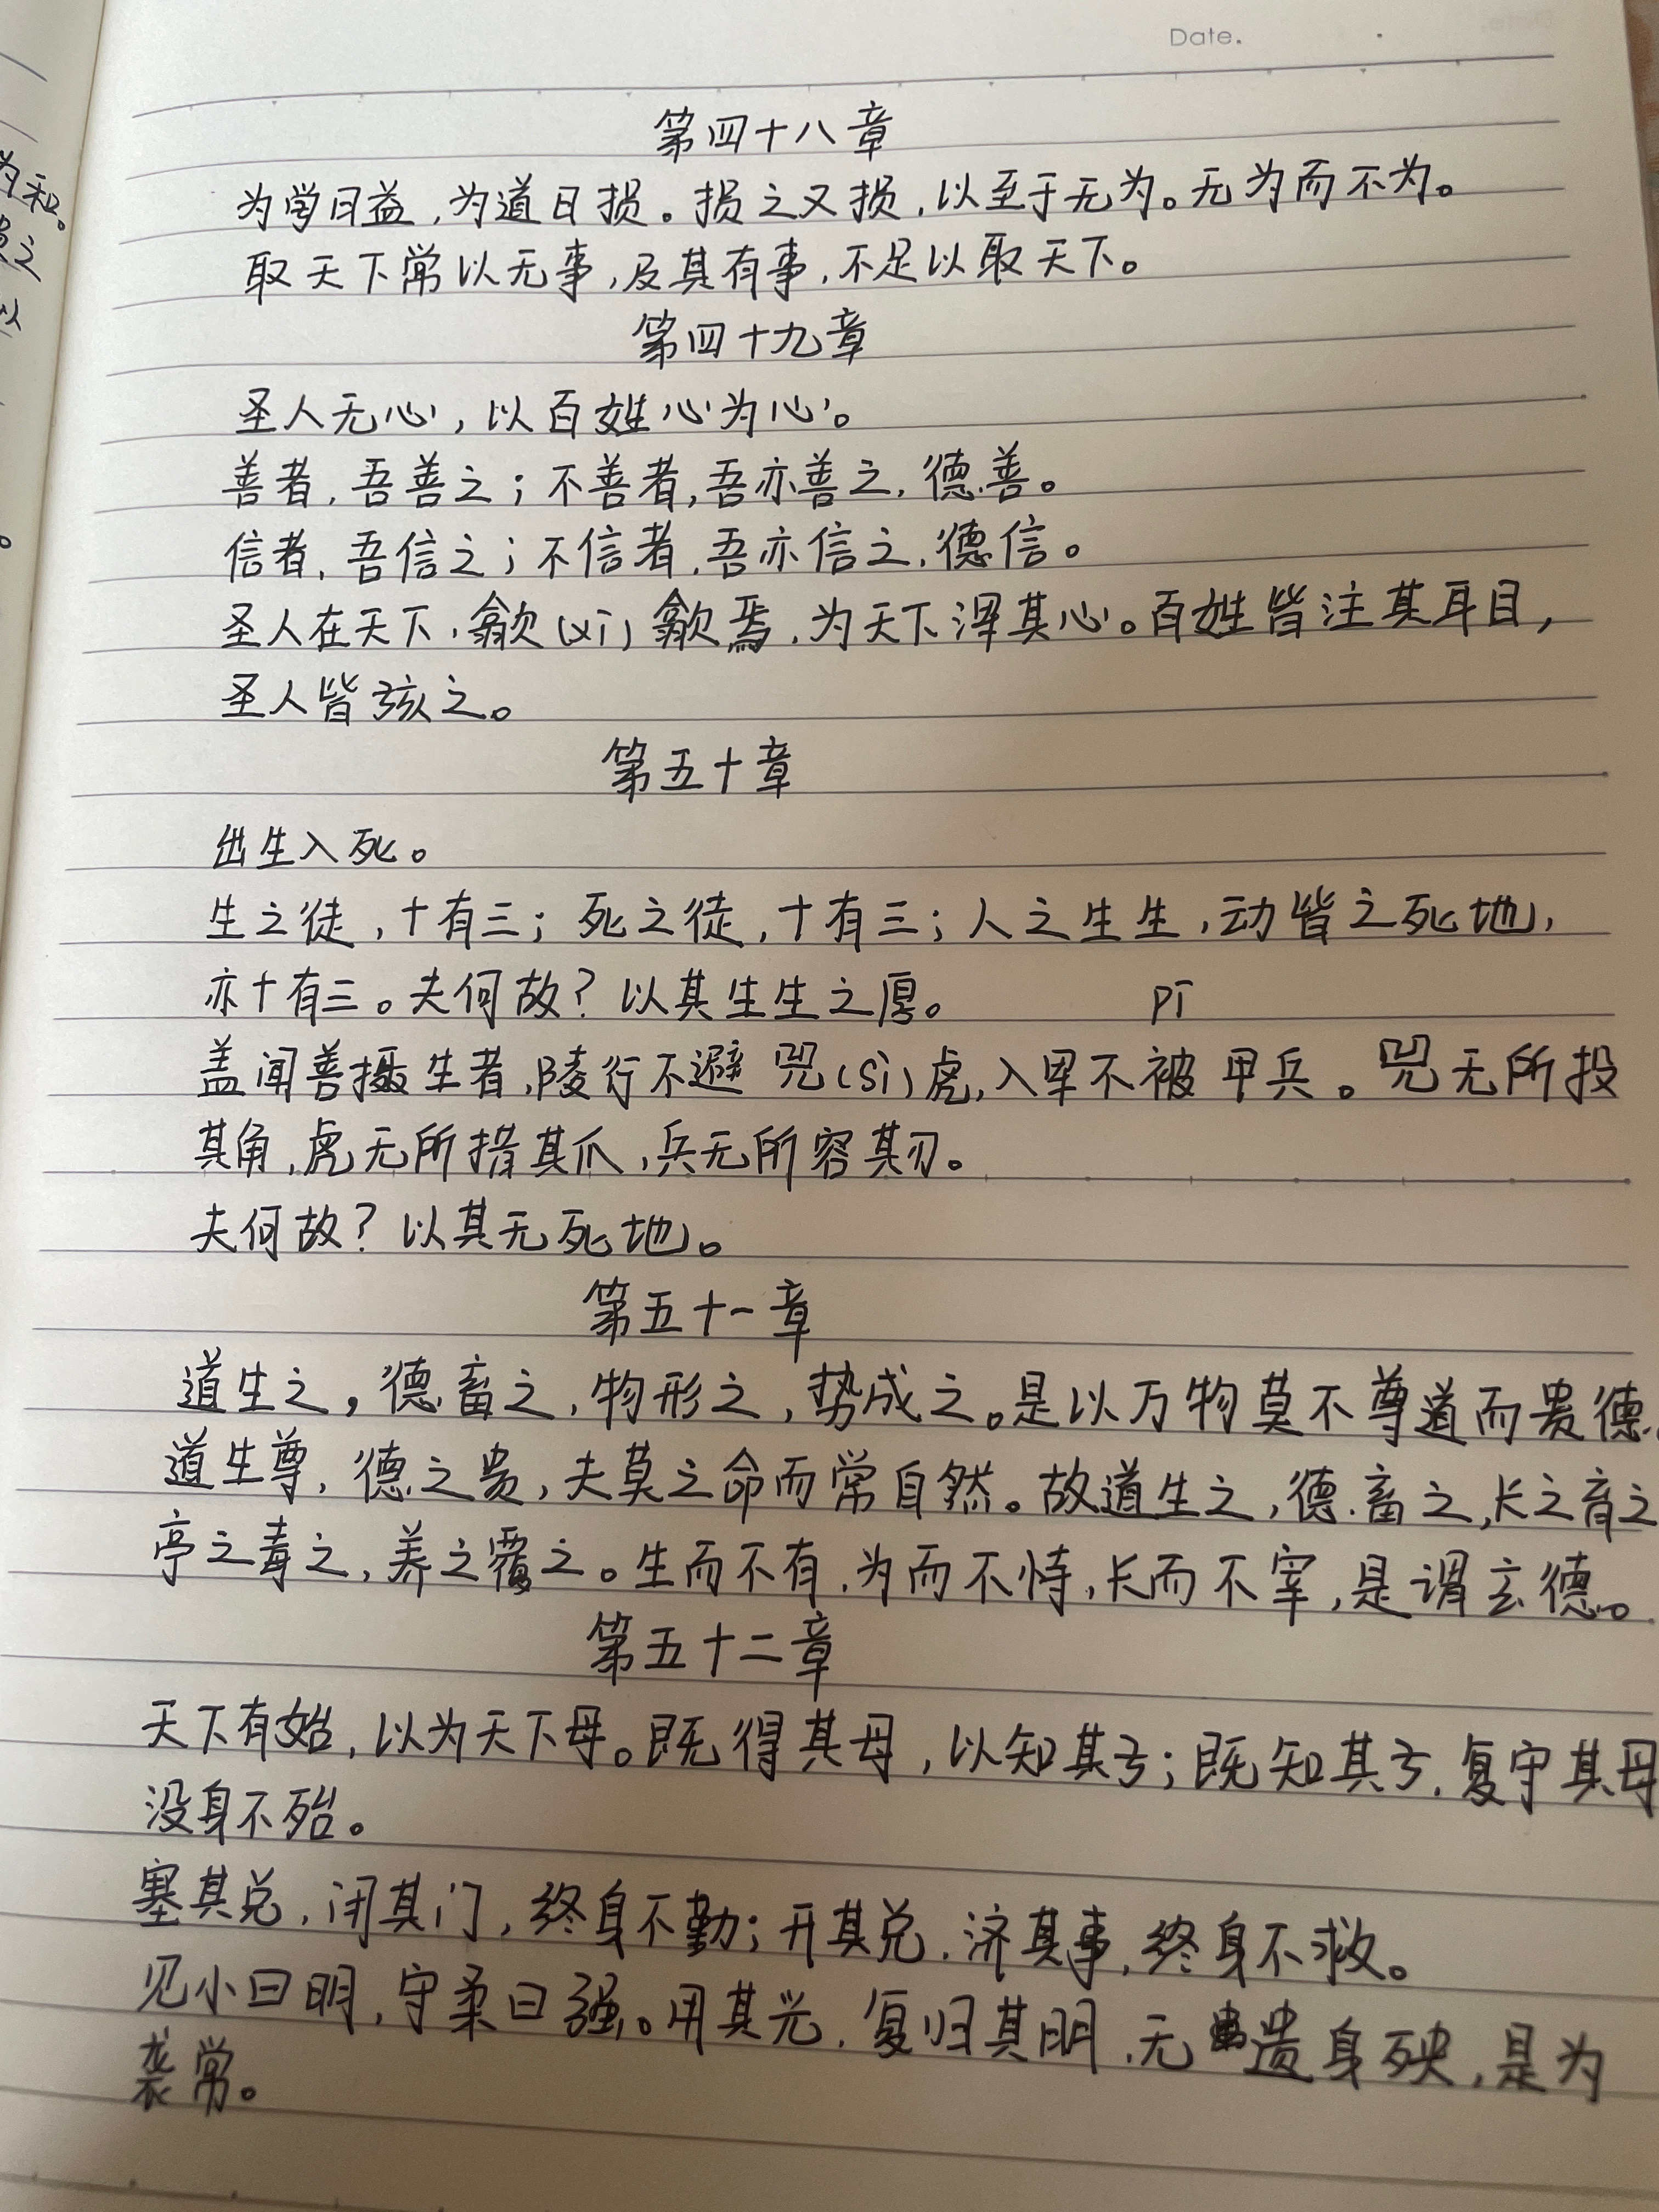 Date.
第四十八章
为学日益,为道日损。损之又损,以至于无为。无为而不为。
取天下常以无事,及其有事,不足以取天下。
第四十九章
圣人无心,以百姓心为心。
善者,吾善之;不善者,吾亦善之,德善。
信者,吾信之;不信者,吾亦信之,德信。
圣人在天下,歙(xī)歙焉,为天下浑其心。百姓皆注其耳目,
圣人皆孩之。
第五十章
出生入死。
生之徒,十有三;死之徒,十有三;人之生生,动皆之死地,
亦十有三。夫何故?以其生生之厚。
pī
盖闻善摄生者,陵行不避兕(sì)虎,入军不被甲兵。兕无所投
其角,虎无所措其爪,兵无所容其刃。
夫何故?以其无死地。
第五十一章
道生之,德畜之,物形之,势成之。是以万物莫不尊道而贵德。
道生尊,德之贵,夫莫之命而常自然。故道生之,德畜之,长之育之
亭之毒之,养之覆之。生而不有,为而不恃,长而不宰,是谓玄德。
第五十二章
天下有始,以为天下母。既得其母,以知其子;既知其子,复守其母
没身不殆。
塞其兑,闭其门,终身不勤;开其兑,济其事,终身不救。
见小曰明,守柔曰强。用其光,复归其明,无遗身殃,是为
袭常。
为和。